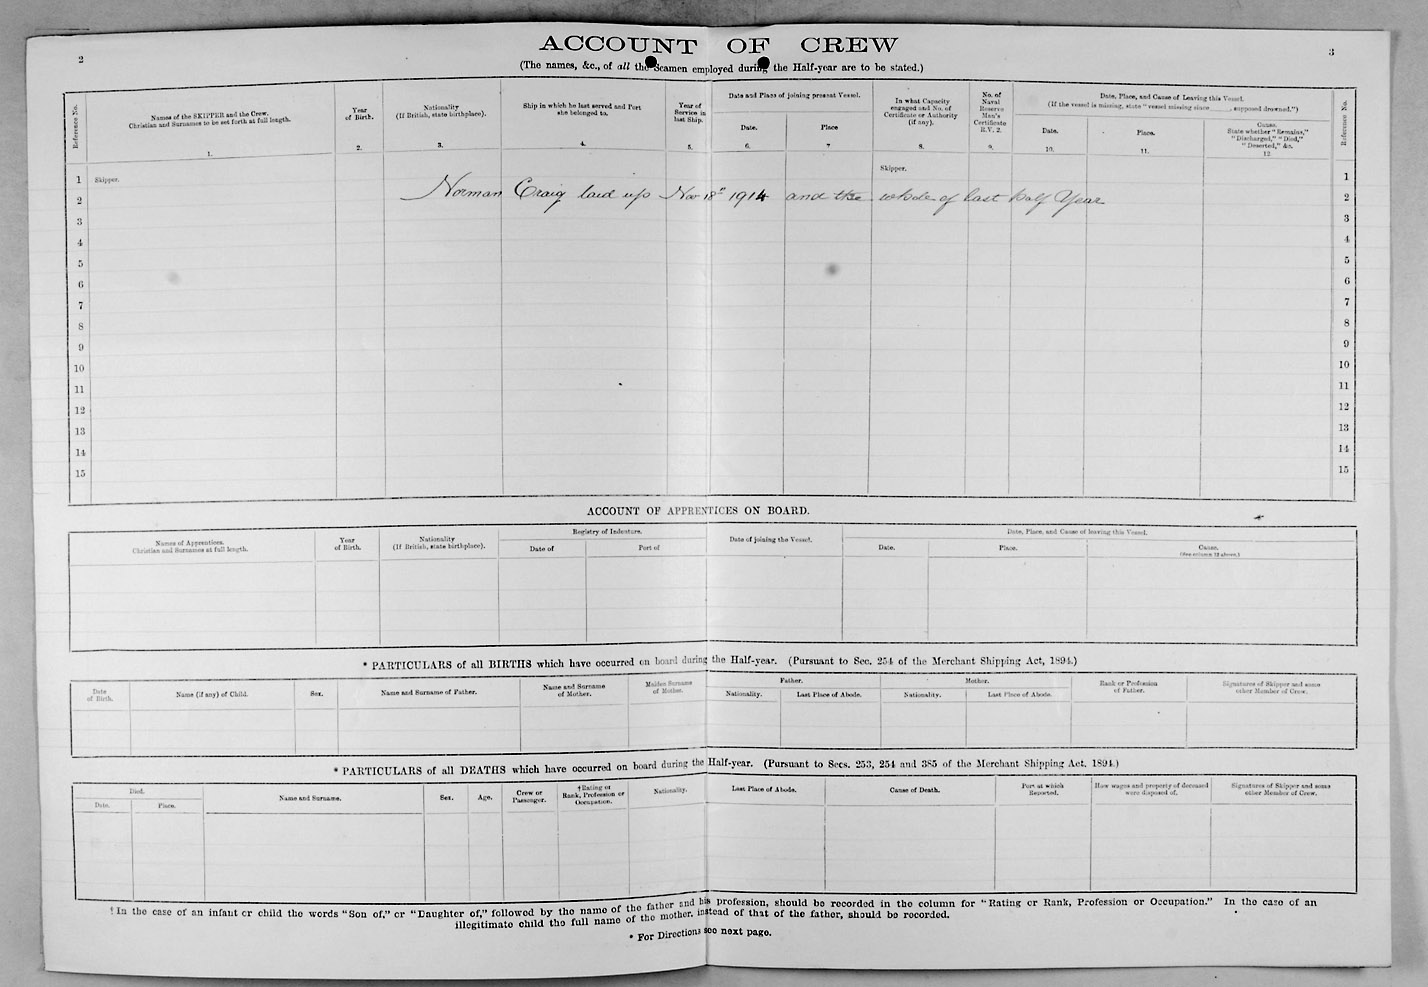 2
ACCOUNT OF CREW
3
(The names, &c., of all the Seamen employed during the Half-year are to be stated.)
Reference No.
Names of the SKIPPER and the Crew.
Christian and Surnames to be set forth at full length.
1.
Year
of Birth.
2.
Nationality
(If British, state birthplace).
3.
Ship in which he last served and Port
she belonged to.
4.
Year of
Service in
last Ship.
5.
Date and Place of joining present Vessel.
Date.
6.
Place
7
In what Capacity
engaged and No. of
Certificate or Authority
(if any).
8.
No. of
Naval
Reserve
Man's
Certificate
R.V. 2.
9.
Date, Place, and Cause of Leaving this Vessel.
(If the vessel is missing, state "vessel missing since______, supposed drowned.")
Date.
10.
Place.
11.
Cause.
State whether "Remains,"
"Discharged," "Died,"
"Deserted," &c.
12.
Reference No.
1 Skipper. Skipper. 1
2 Norman Craig laid up Nov 18" 1914 and the whole of last half Year 2
3 3
4 4
5 5
6 6
7 7
8 8
9 9
10 10
11 11
12 12
13 13
14 14
15 15
ACCOUNT OF APPRENTICES ON BOARD.
Names of Apprentices.
Christian and Surnames at full length.
Year
of Birth.
Nationality
(If British, state birthplace).
Registry of Indenture.
Date of
Port of
Date of joining the Vessel.
Date, Place, and Cause of leaving this Vessel.
Date.
Place.
Cause.
(See column 12 above.)
* PARTICULARS of all BIRTHS which have occurred on board during the Half-year. (Pursuant to Sec. 254 of the Merchant Shipping Act, 1894.)
Date
of Birth.
Name (if any) of Child.
Sex.
Name and Surname of Father.
Name and Surname
of Mother.
Maiden Surname
of Mother.
Father.
Nationality.
Last Place of Abode.
Mother.
Nationality.
Last Place of Abode.
Rank or Profession
of Father.
Signatures of Skipper and some
other Member of Crew.
* PARTICULARS of all DEATHS which have occurred on board during the Half-year. (Pursuant to Secs. 253, 254 and 385 of the Merchant Shipping Act, 1894.)
Died.
Date.
Place.
Name and Surname.
Sex.
Age.
Crew or
Passenger.
†Rating or
Rank, Profession or
Occupation.
Nationality.
Last Place of Abode.
Cause of Death.
Port at which
Reported.
How wages and property of deceased
were disposed of.
Signatures of Skipper and some
other Member of Crew.
† In the case of an infant or child the words "Son of," or "Daughter of," followed by the name of the father and his profession, should be recorded in the column for "Rating or Rank, Profession or Occupation." In the case of an
illegitimate child the full name of the mother, instead of that of the father, should be recorded.
* For Directions see next page.